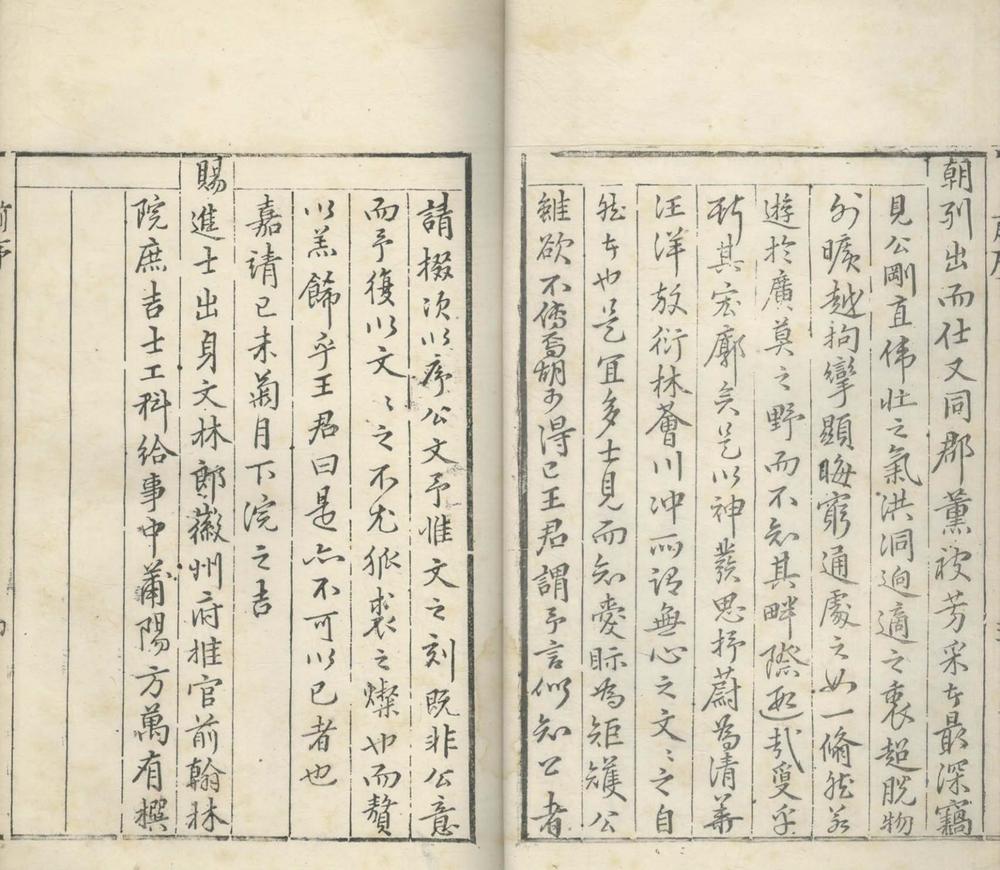 朝列出而仕又同郡薰被芳采者最深竊
見公剛直偉壯之氣洪洞迥適之衷超脫物
外曠越拘攣顯晦窮通處之如一翛然若
遊於廣莫之野而不知其畔際遐哉敻乎
斯其宏廓矣是以神發思抒蔚為清華
汪洋放衍林薈川冲所謂無心之文〻之自
然者也是宜多士見而知愛眎為矩矱公
雖欲不傳焉胡可得已王君謂予言似知公者
請掇次以序公文予惟文之刻既非公意
而予復以文〻之不尤狐裘之燦也而贅
以羔飾乎王君曰是亦不可以已者也
嘉靖己未菊月下浣之吉
賜進士出身文林郎徽州府推官前翰林
院庶吉士工科給事中莆陽方萬有撰